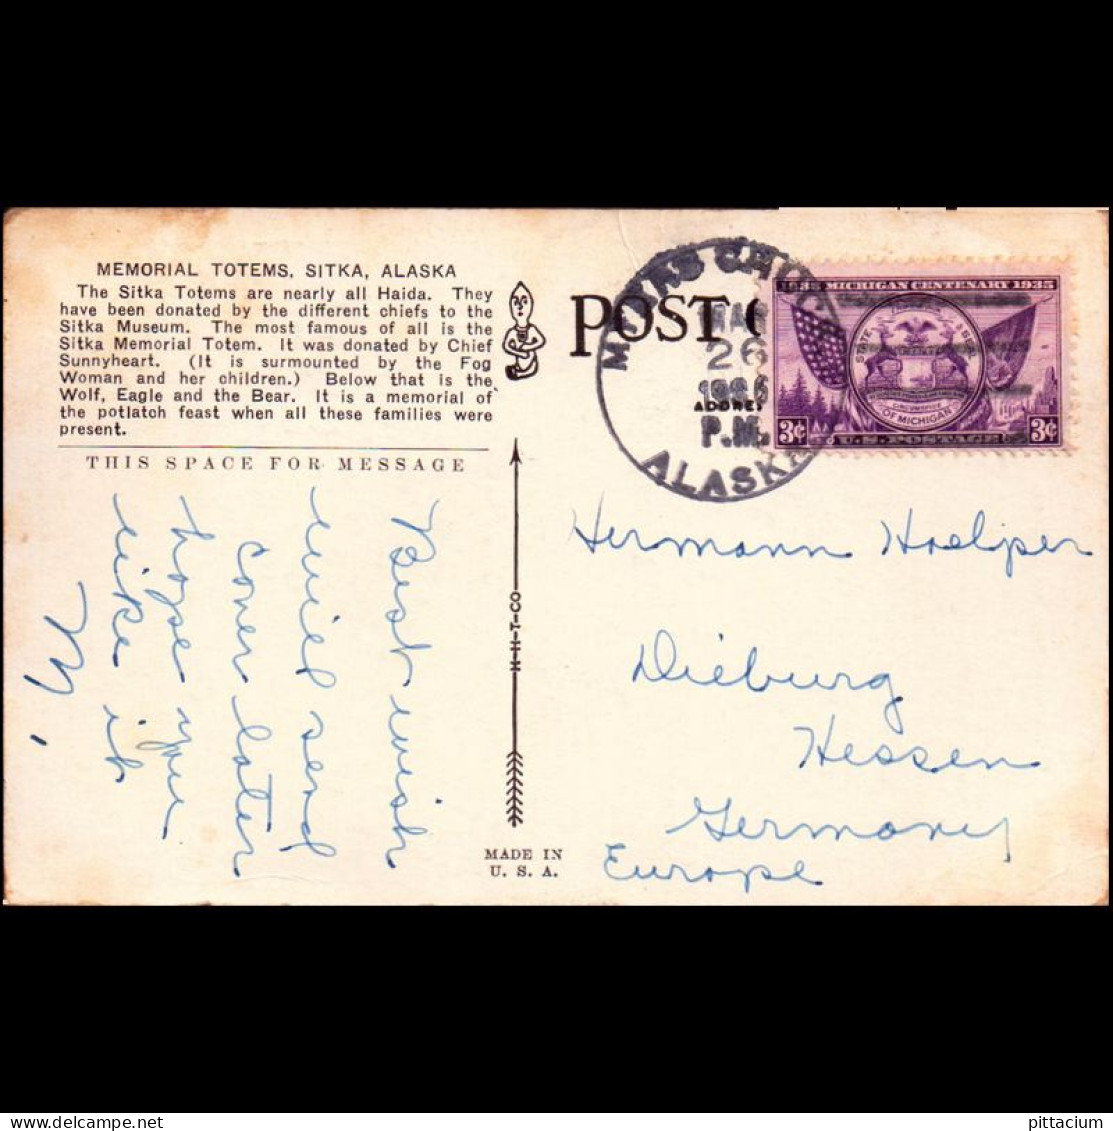 MEMORIAL TOTEMS, SITKA, ALASKA
The Sitka Totems are nearly all Haida. They
have been donated by the different chiefs to the
Sitka Museum. The most famous of all is the
Sitka Memorial Totem. It was donated by Chief
Sunnyheart. (It is surmounted by the Fog
Woman and her children.) Below that is the
Wolf, Eagle and the Bear. It is a memorial of
the potlatch feast when all these families were
present.
THIS SPACE FOR MESSAGE
Best wish
will send
cover later
hope you
like it
H-H-T-CO
MADE IN
U. S. A.
POST
26
P.M.
ALASKA
1835 MICHIGAN CENTENARY 1935
STATE SEAL
OF MICHIGAN
3¢ U.S. POSTAGE 3¢
Hermann Hoelper
Dieburg
Hessen
Germany
Europe
delcampe.net
pittacium